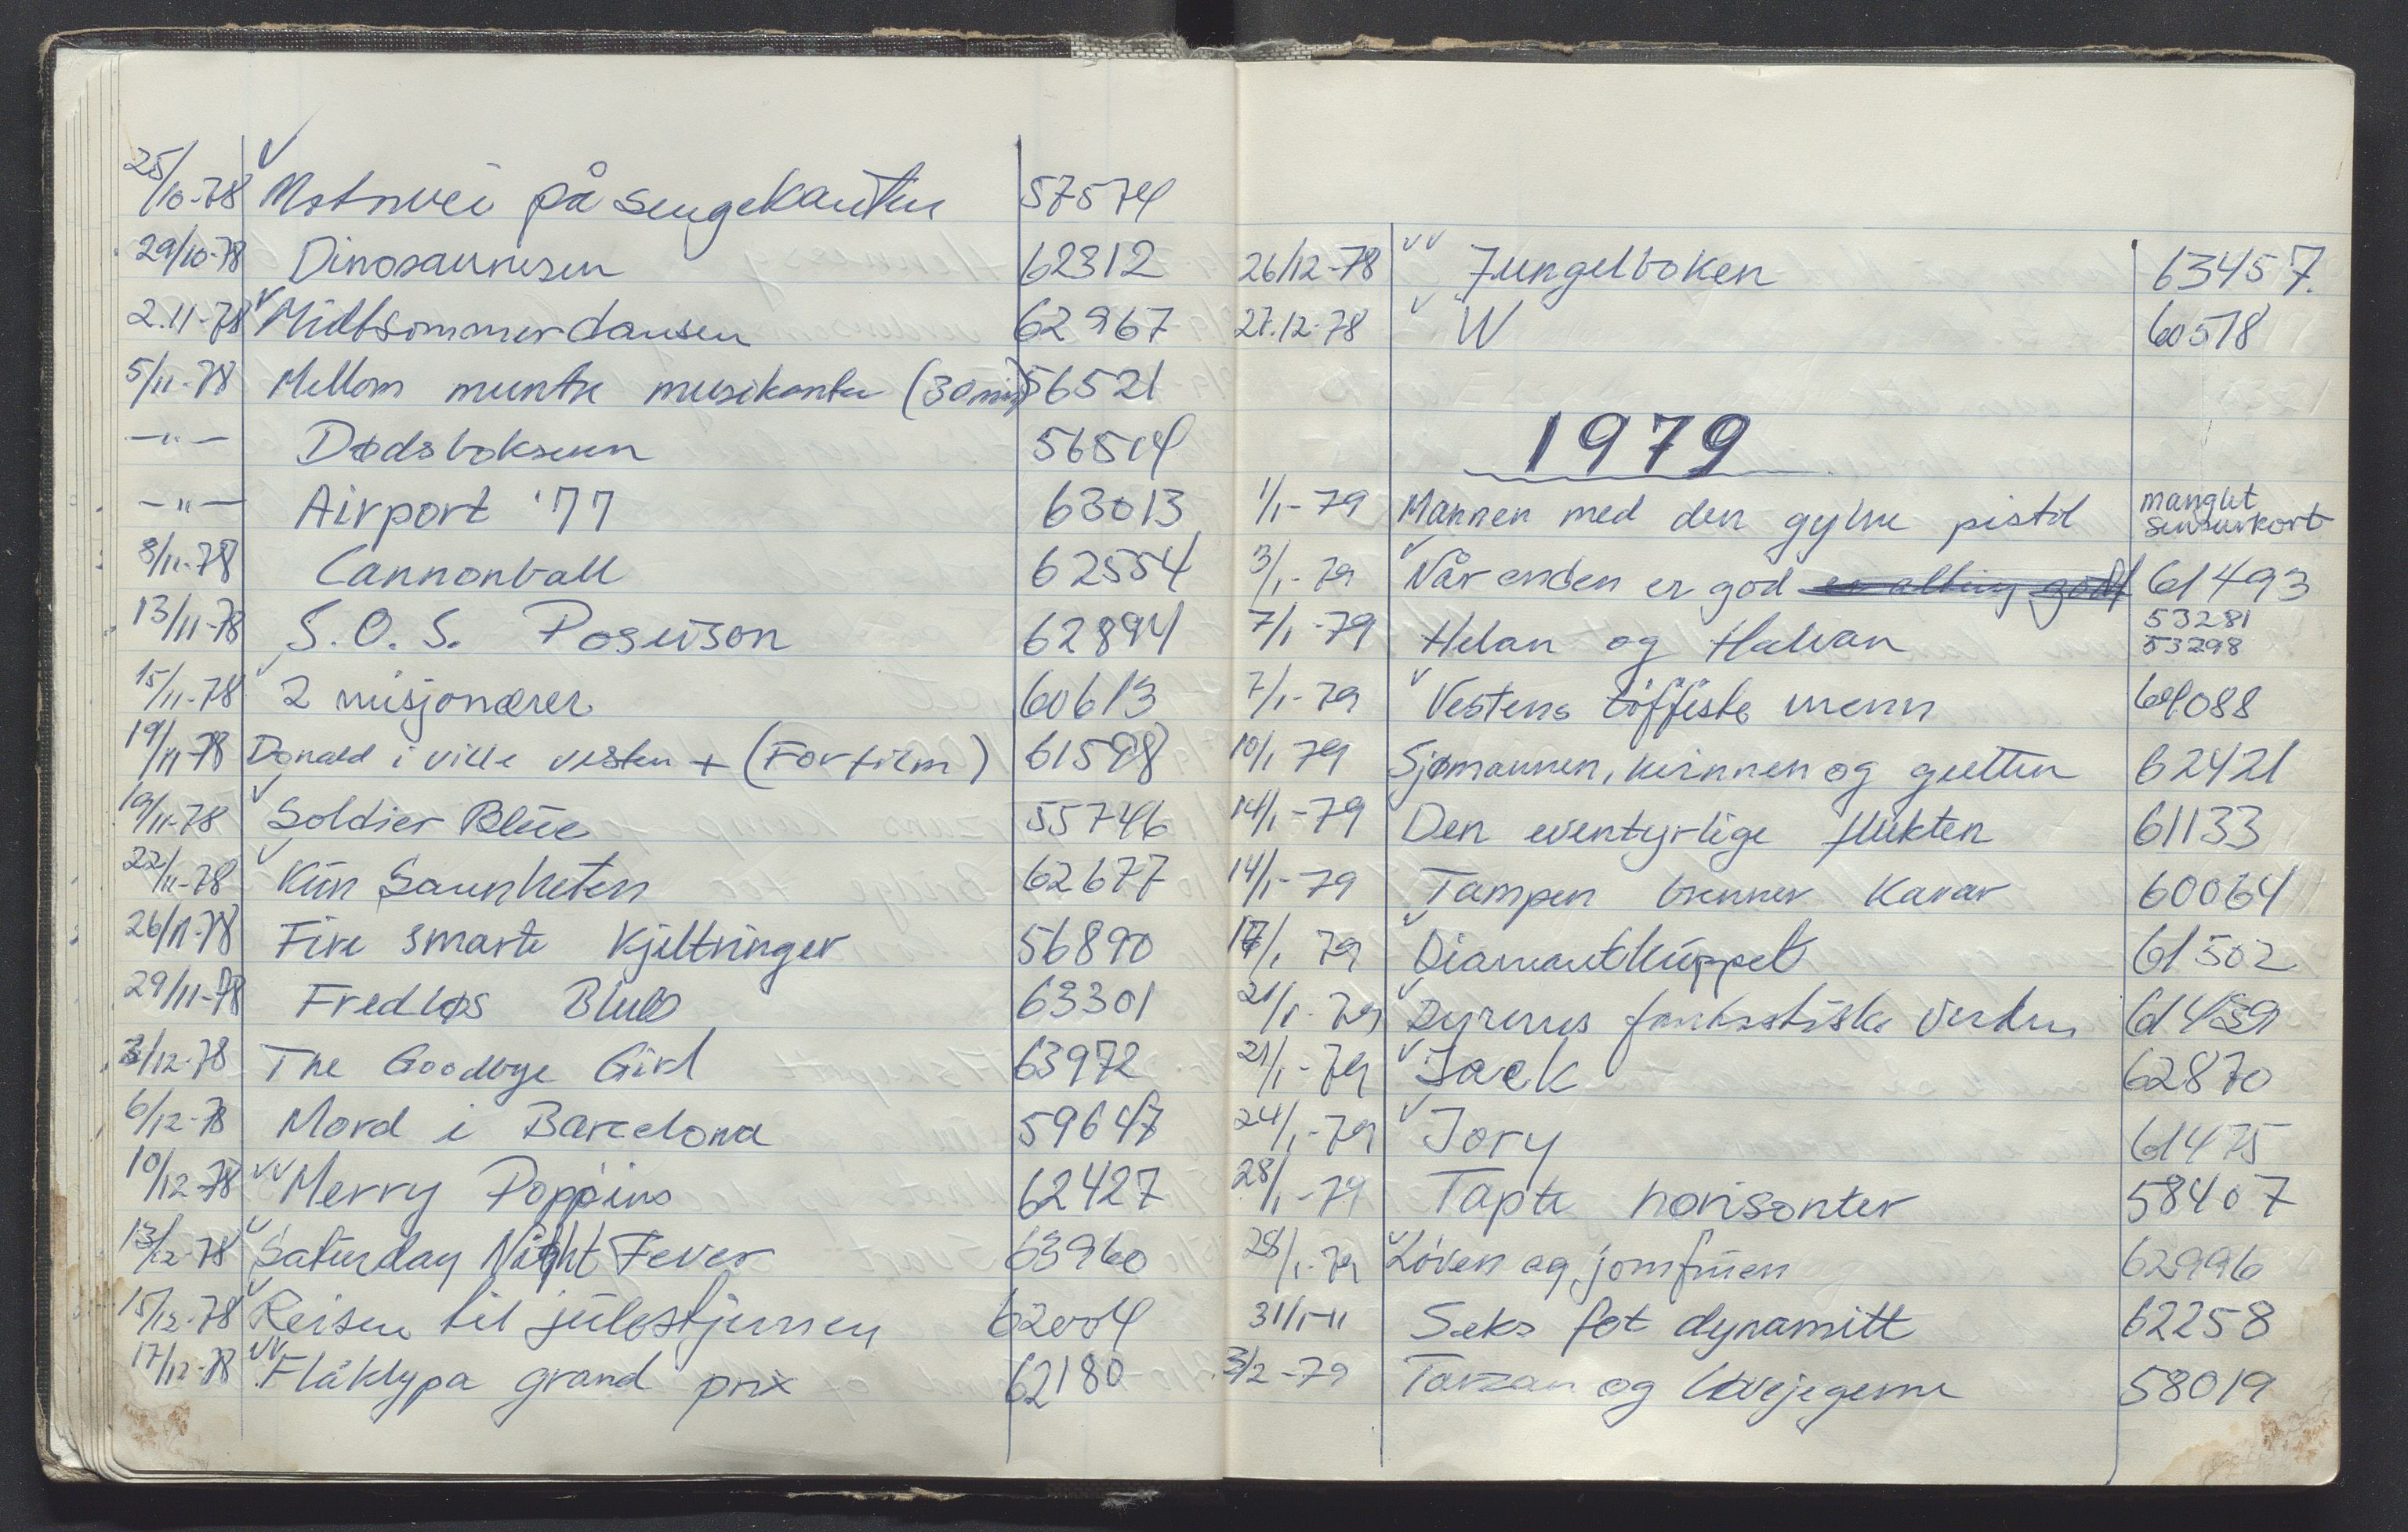 25/10-78 v Motorvei på sengekanten 57574
29/10-78 Dinosaurusen 62312
2.11-78 v Midtsommerdansen 62967
5/11-78 Mellom muntre musikanter (30 min) 56521
-"- Dødsbokseren 56514
-"- Airport '77 63013
8/11-78 Cannonball 62554
13/11-78 S.O.S. Poseidon 62894
15/11-78 v 2 misjonærer 60613
19/11-78 Donald i ville vesten + (Forfilm) 61598
19/11-78 v Soldier Blue 55746
22/11-78 v Kun Sannheten 62677
26/11-78 Fire smarte Kjeltringer 56890
29/11-78 Fredløs Blues 63301
3/12-78 The Goodbye Girl 63972
6/12-78 Mord i Barcelona 59647
10/12-78 vv Merry Poppins 62427
13/12-78 v Saturday Night Fever 63960
15/12-78 v Reisen til julestjernen 62004
17/12-78 vv Flåklypa grand prix 62180
26/12-78 vv Jungelboken 63457.
27.12-78 v W 60578
1979
1/1-79 Mannen med den gylne pistol manglet sensurkort
3/1-79 v Når enden er god er alting godt 61493
7/1-79 Helan og Halvan 53281
53298
7/1-79 v Vestens tøffeste menn 64088
10/1 79 Sjømannen, kvinnen og gutten 62421
14/1-79 Den eventyrlige flukten 61133
14/1-79 Tampen brenner Karar 60064
17/1 79 v Diamantkuppet 61502
21/1-79 v Dyrenes fantastiske verden 61459
21/1-79 v Jack 62870
24/1-79 v Jory 61475
28/1-79 Tapte horisonter 58407
28/1-79 v Løven og jomfruen 62996
31/1-11 Seks fot dynamitt 62258
3/2-79 Tarzan og løvejegerne 58019